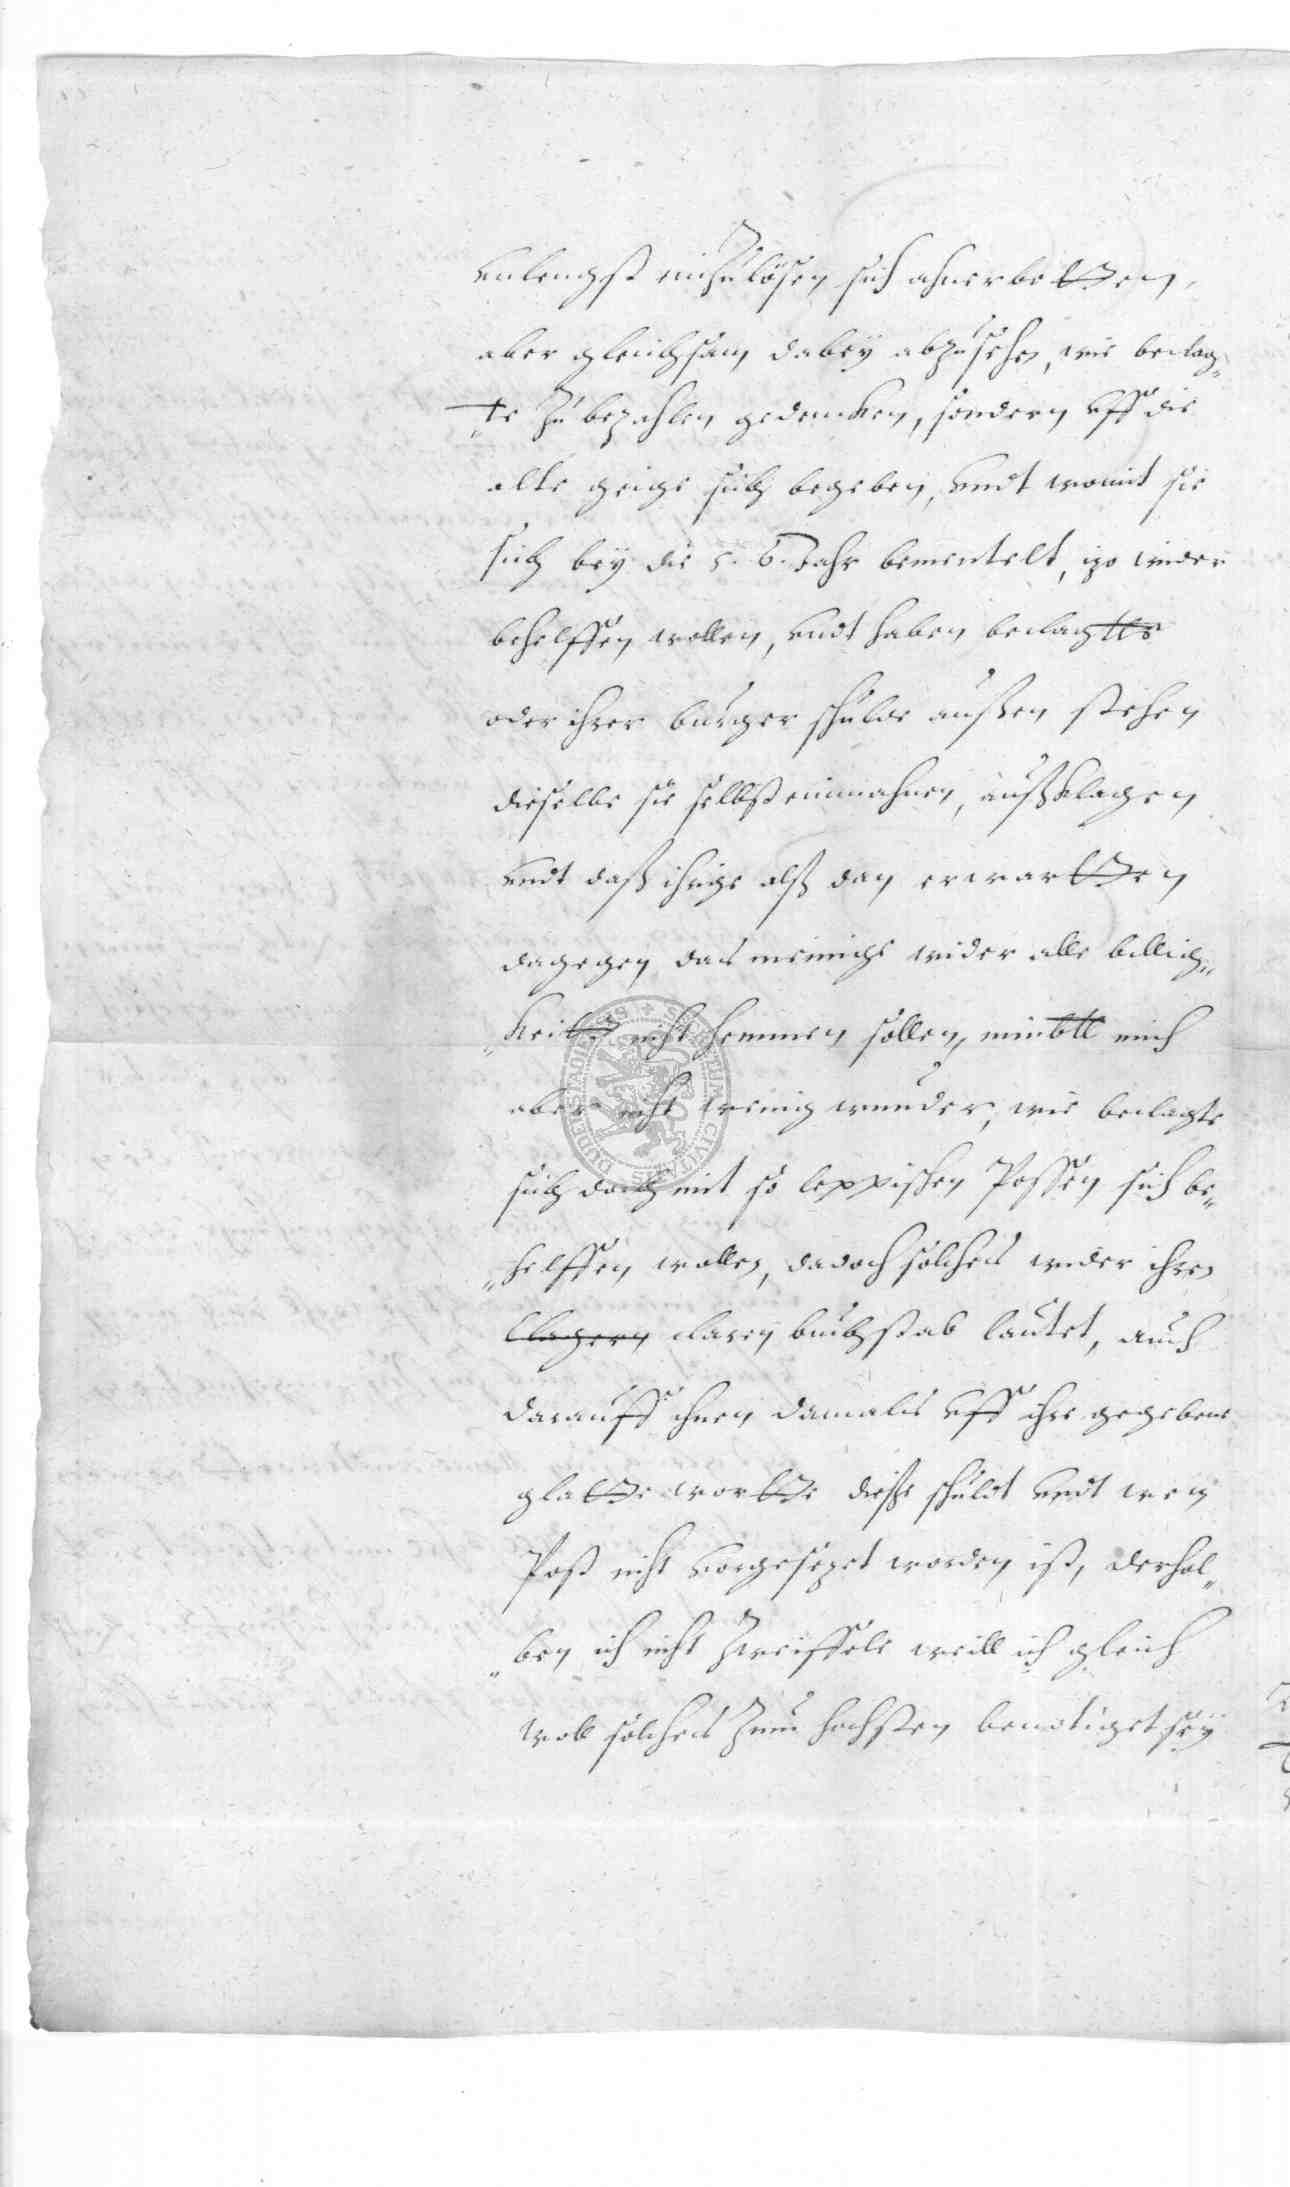 unlengst einzulösen sich ahnerbotten,
aber gleichsam dabey abzusehen, wie beclag„
„te zu bezahlen gedencken, sondern uff die
alte geige sich begeben, undt womit sie
sich bey die 5. 6. Jahr bementelt, izo wider
behelffen wollen, undt haben beclagtte
oder ihrer burger schulde aussen stehen
dieselbe sie selbst einmahnen, außklagen
undt daß ihrige alß dan erwartten
dagegen das meinige wider alle billig„
„keitt nicht hemmen sollen, nimbtt mich
aber nicht wenig wunder, wie beclagte
sich doch mit so leppischen Possen sich be„
„helffen wollen, dadoch solches wider ihren
clagern claren buchstab lautet, auch
darauff ihnen damals uff ihre gegebene
glatte wortte diese schuldt undt wein
Post nicht vorgesezet worden ist, derhal„
„ben ich nicht zweiffele weill ich gleich
woll solches zum hochsten benotiget sey
SECRETUM CIVITATIS DUDERSTADIENSIS